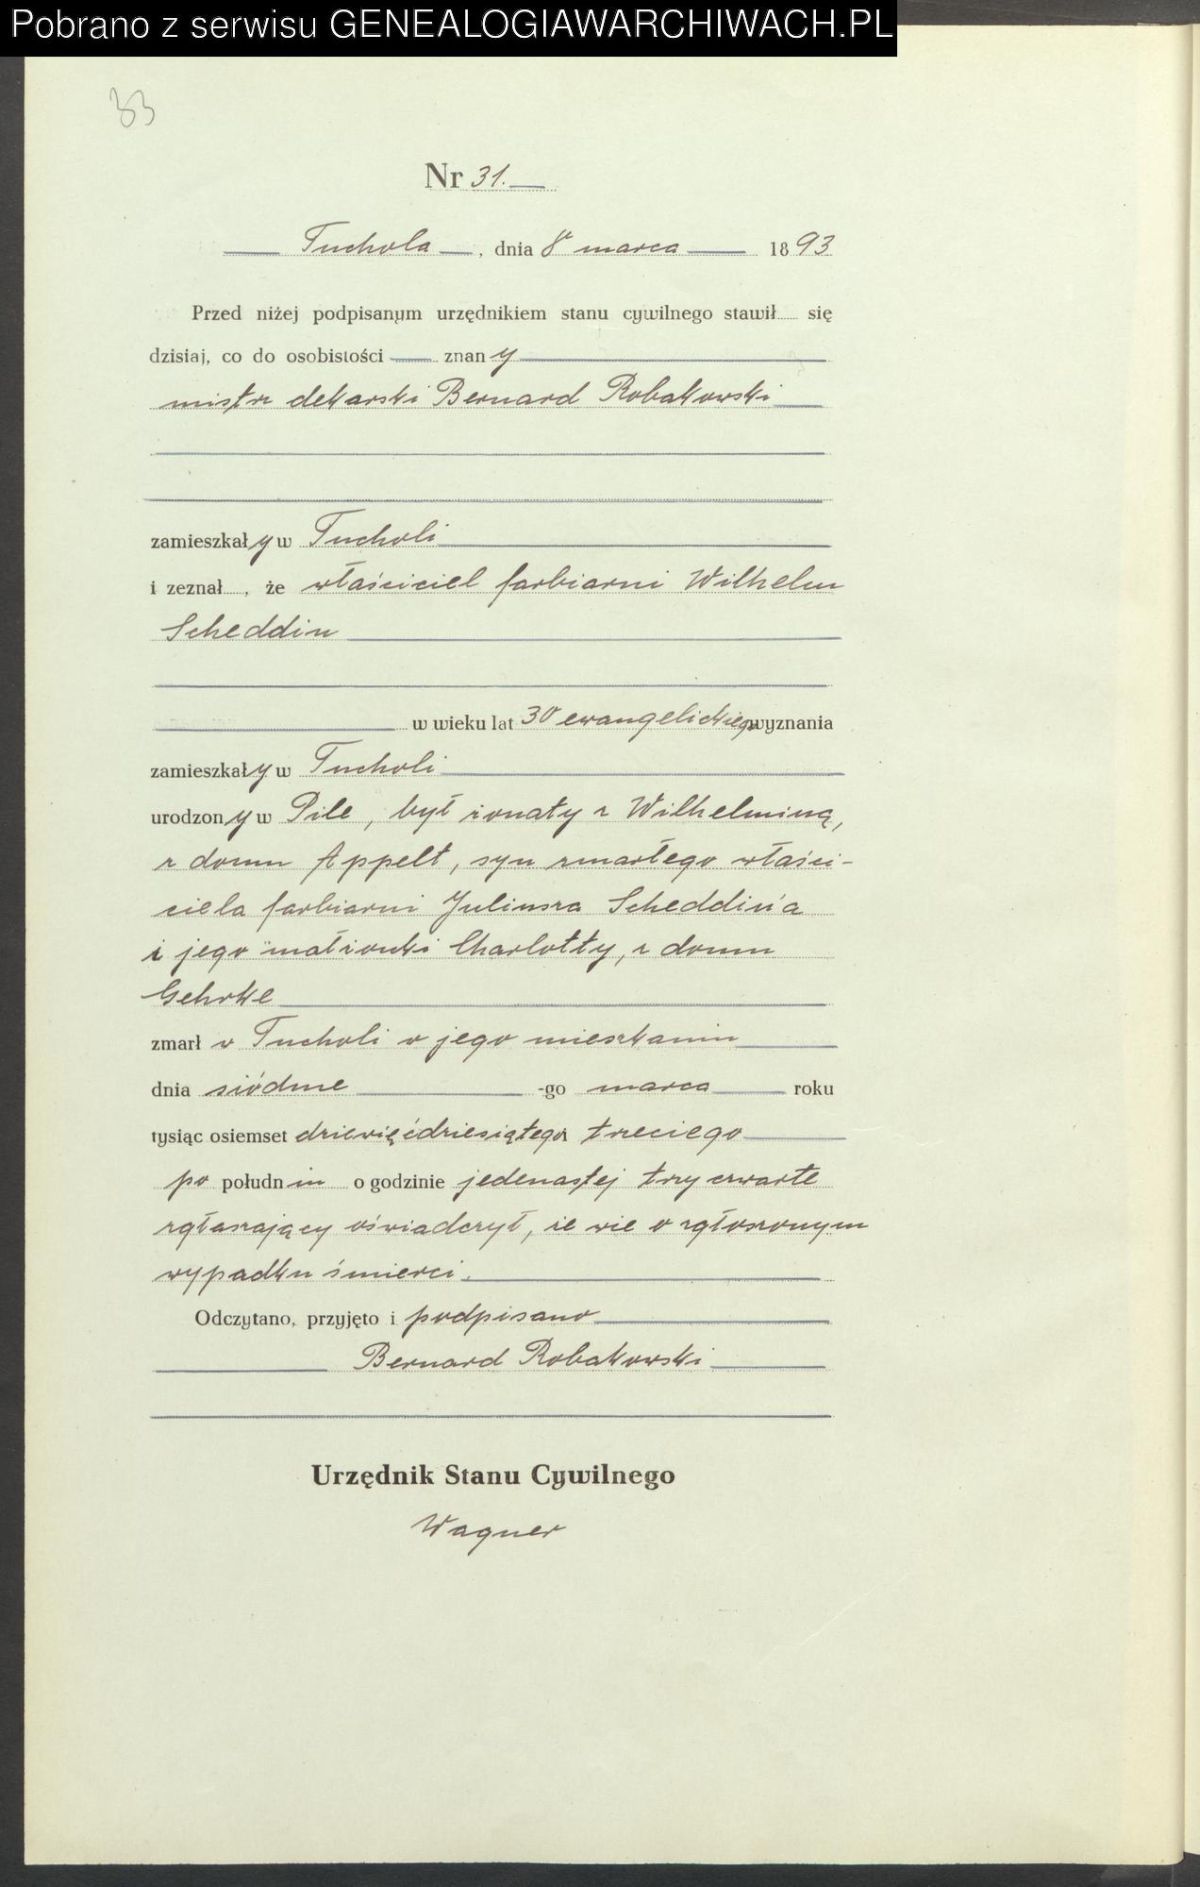 Pobrano z serwisu GENEALOGIAWARCHIWACH.PL
33
Nr 31.
Tuchola, dnia 8 marca 1893
Przed niżej podpisanym urzędnikiem stanu cywilnego stawił się
dzisiaj, co do osobistości znany
mistrz dekarski Bernard Robakowski
zamieszkały w Tucholi
i zeznał, że właściciel farbiarni Wilhelm
Scheddin
w wieku lat 30 ewangelickiego wyznania
zamieszkały w Tucholi
urodzony w Pile, był żonaty z Wilhelminą,
z domu Appelt, syn zmarłego właści-
ciela farbiarni Juliusza Scheddin'a
i jego małżonki Charlotty, z domu
Gehrke
zmarł w Tucholi w jego mieszkaniu
dnia siódme -go marca roku
tysiąc osiemset dziewięćdziesiątego trzeciego
po południu o godzinie jedenastej trzy czwarte
zgłaszający oświadczył, że wie o zgłoszonym
wypadku śmierci.
Odczytano, przyjęto i podpisano
Bernard Robakowski
Urzędnik Stanu Cywilnego
Wagner